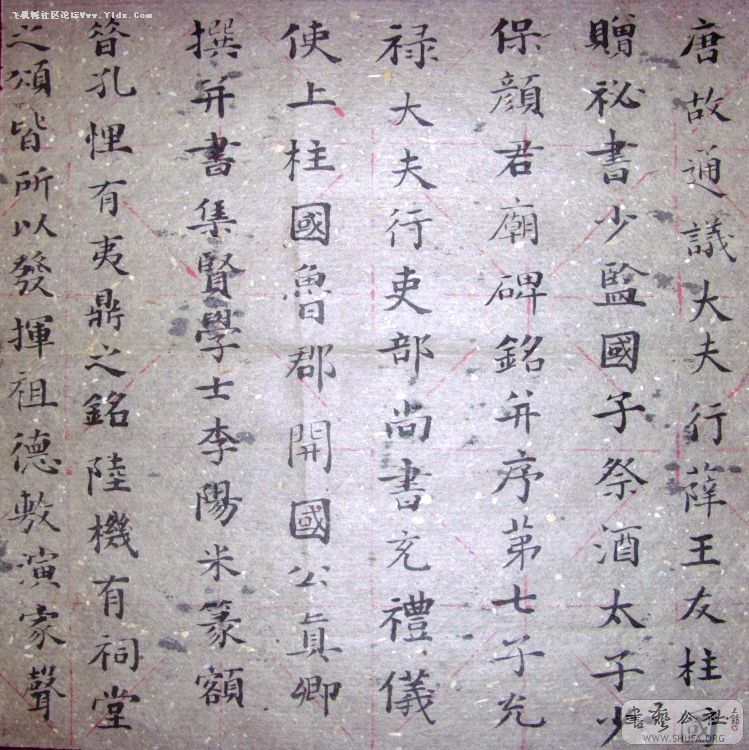 唐故通議大夫行薛王友柱
贈祕書少監國子祭酒太子少
保顏君廟碑銘并序第七子光
禄大夫行吏部尚書充禮儀
使上柱國魯郡開國公真卿
撰并書集賢學士李陽冰篆額
昔孔悝有夷鼎之銘陸機有祠堂
之頌皆所以發揮祖德敷演家聲
飞墨轩社区论坛Www.Yldx.com
書藝公社
WWW.SHUFA.ORG